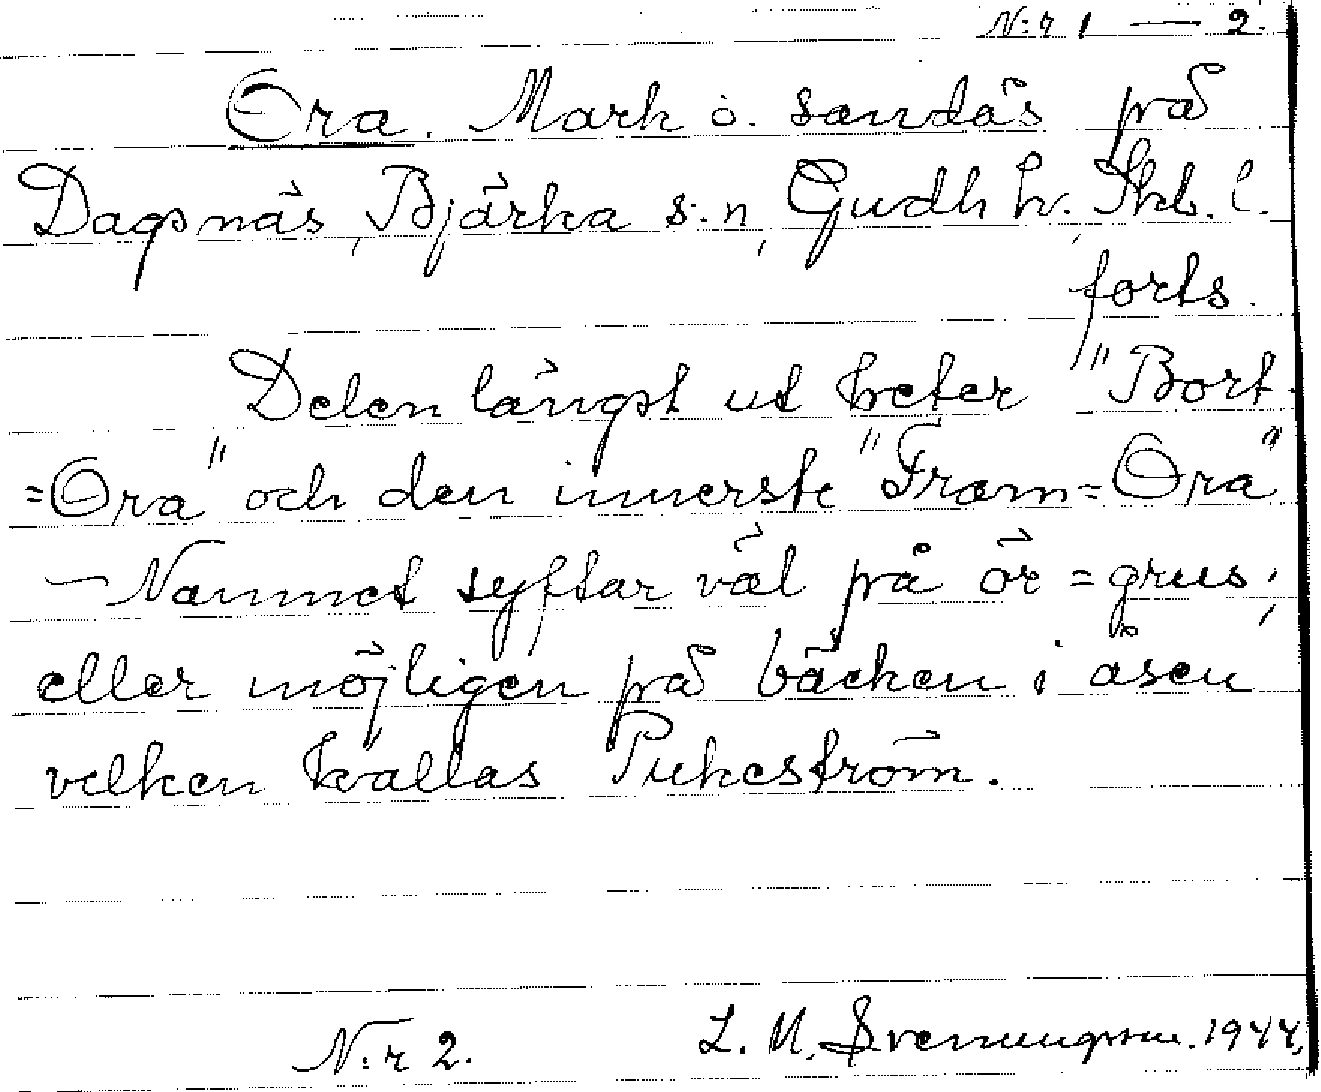 N:r 1 — 2.
Öra. Mark o. sandås på
Dagsnäs, Bjärka s:n, Gudh. hr. Skb. l.
forts.
Delen längst ut heter "Bort-
=Öra" och den innerste "Fram=Öra"
— Namnet syftar väl på ör = grus;
eller möjligen på bäcken i åsen
vilken kallas Pukeström.
N:r 2. L. M. Svenungsson. 1944.